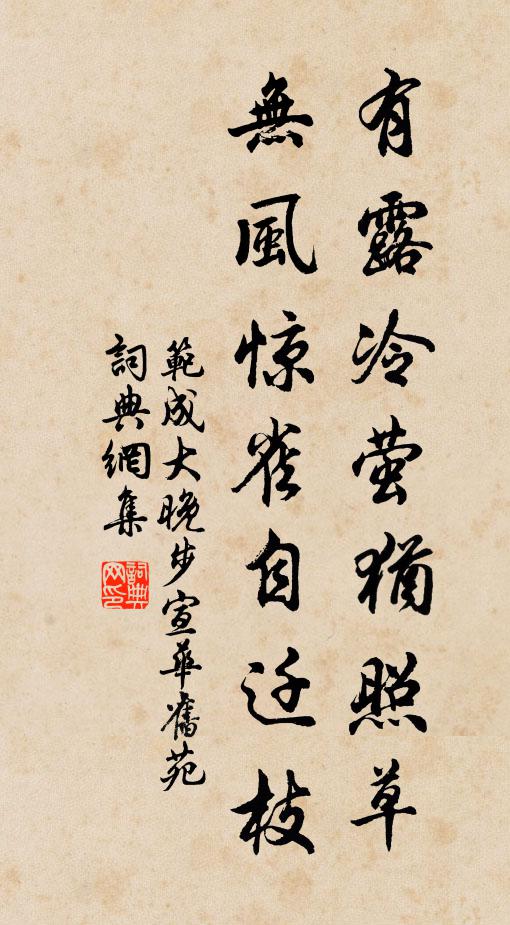 有露冷萤猶照草
無風惊雀自迁枝
範成大晚步宣華舊苑
詞典網集
詞典网印